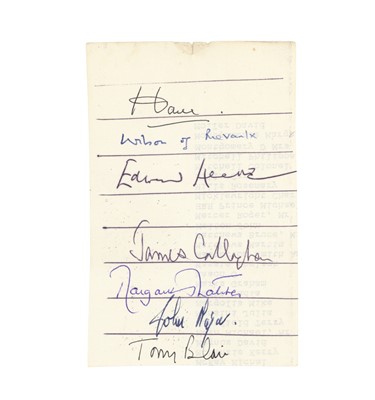 Home.
Wilson of Rievaulx
Edward Heath
James Callaghan
Margaret Thatcher
John Major.
Tony Blair